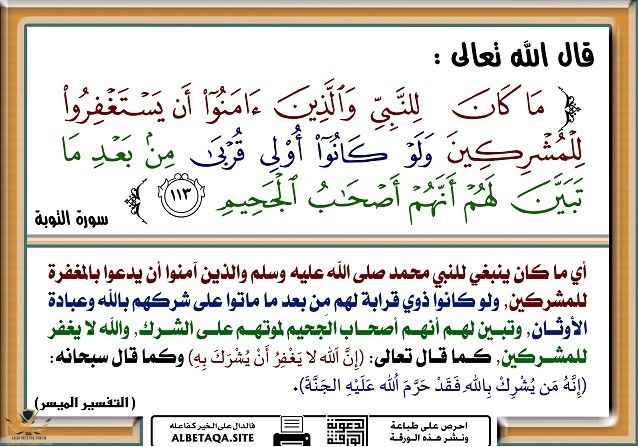 قال الله تعالى :
﴿ مَا كَانَ لِلنَّبِيِّ وَٱلَّذِينَ ءَامَنُوٓا۟ أَن يَسْتَغْفِرُوا۟
لِلْمُشْرِكِينَ وَلَوْ كَانُوٓا۟ أُو۟لِى قُرْبَىٰ مِنۢ بَعْدِ مَا
تَبَيَّنَ لَهُمْ أَنَّهُمْ أَصْحَـٰبُ ٱلْجَحِيمِ ١١٣ ﴾ سورة التوبة
أي ما كان ينبغي للنبي محمد صلى الله عليه وسلم والذين آمنوا أن يدعوا بالمغفرة
للمشركين, ولو كانوا ذوي قرابة لهم من بعد ما ماتوا على شركهم بالله وعبادة
الأوثـان, وتبـين لهـم أنهـم أصحـاب الجحيم لموتهم علـى الشـرك, والله لا يغفر
للمشركين, كـما قـال تعالى: (إِنَّ اللَّه لا يَغْفِرُ أَنْ يُشْرَكَ بِهِ) وكما قال سبحانه:
(إِنَّهُ مَن يُشْرِكْ بِاللهِ فَقَدْ حَرَّمَ اللهُ عَلَيْهِ الجَنَّةَ).
(التفسير الميسر)
احرص على طباعة
ونشر هذه الورقة
فالدال على الخير كفاعله
ALBETAQA.SITE